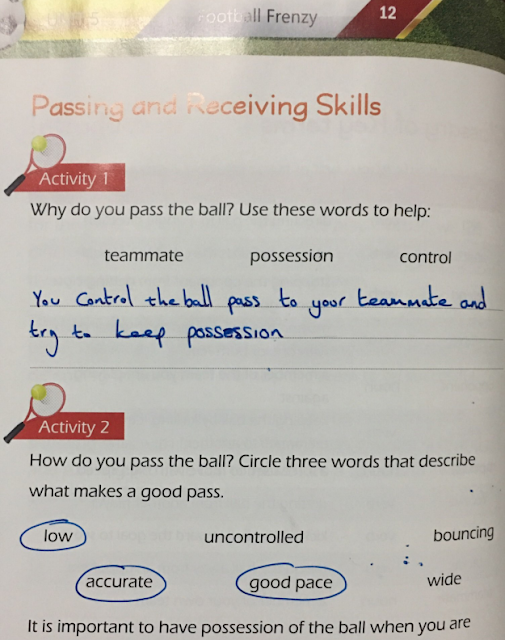 Football Frenzy
12
Passing and Receiving Skills
Activity 1
Why do you pass the ball? Use these words to help:
teammate possession control
You Control the ball pass to your teammate and
try to keep possession
Activity 2
How do you pass the ball? Circle three words that describe
what makes a good pass.
low uncontrolled bouncing
accurate good pace wide
It is important to have possession of the ball when you are